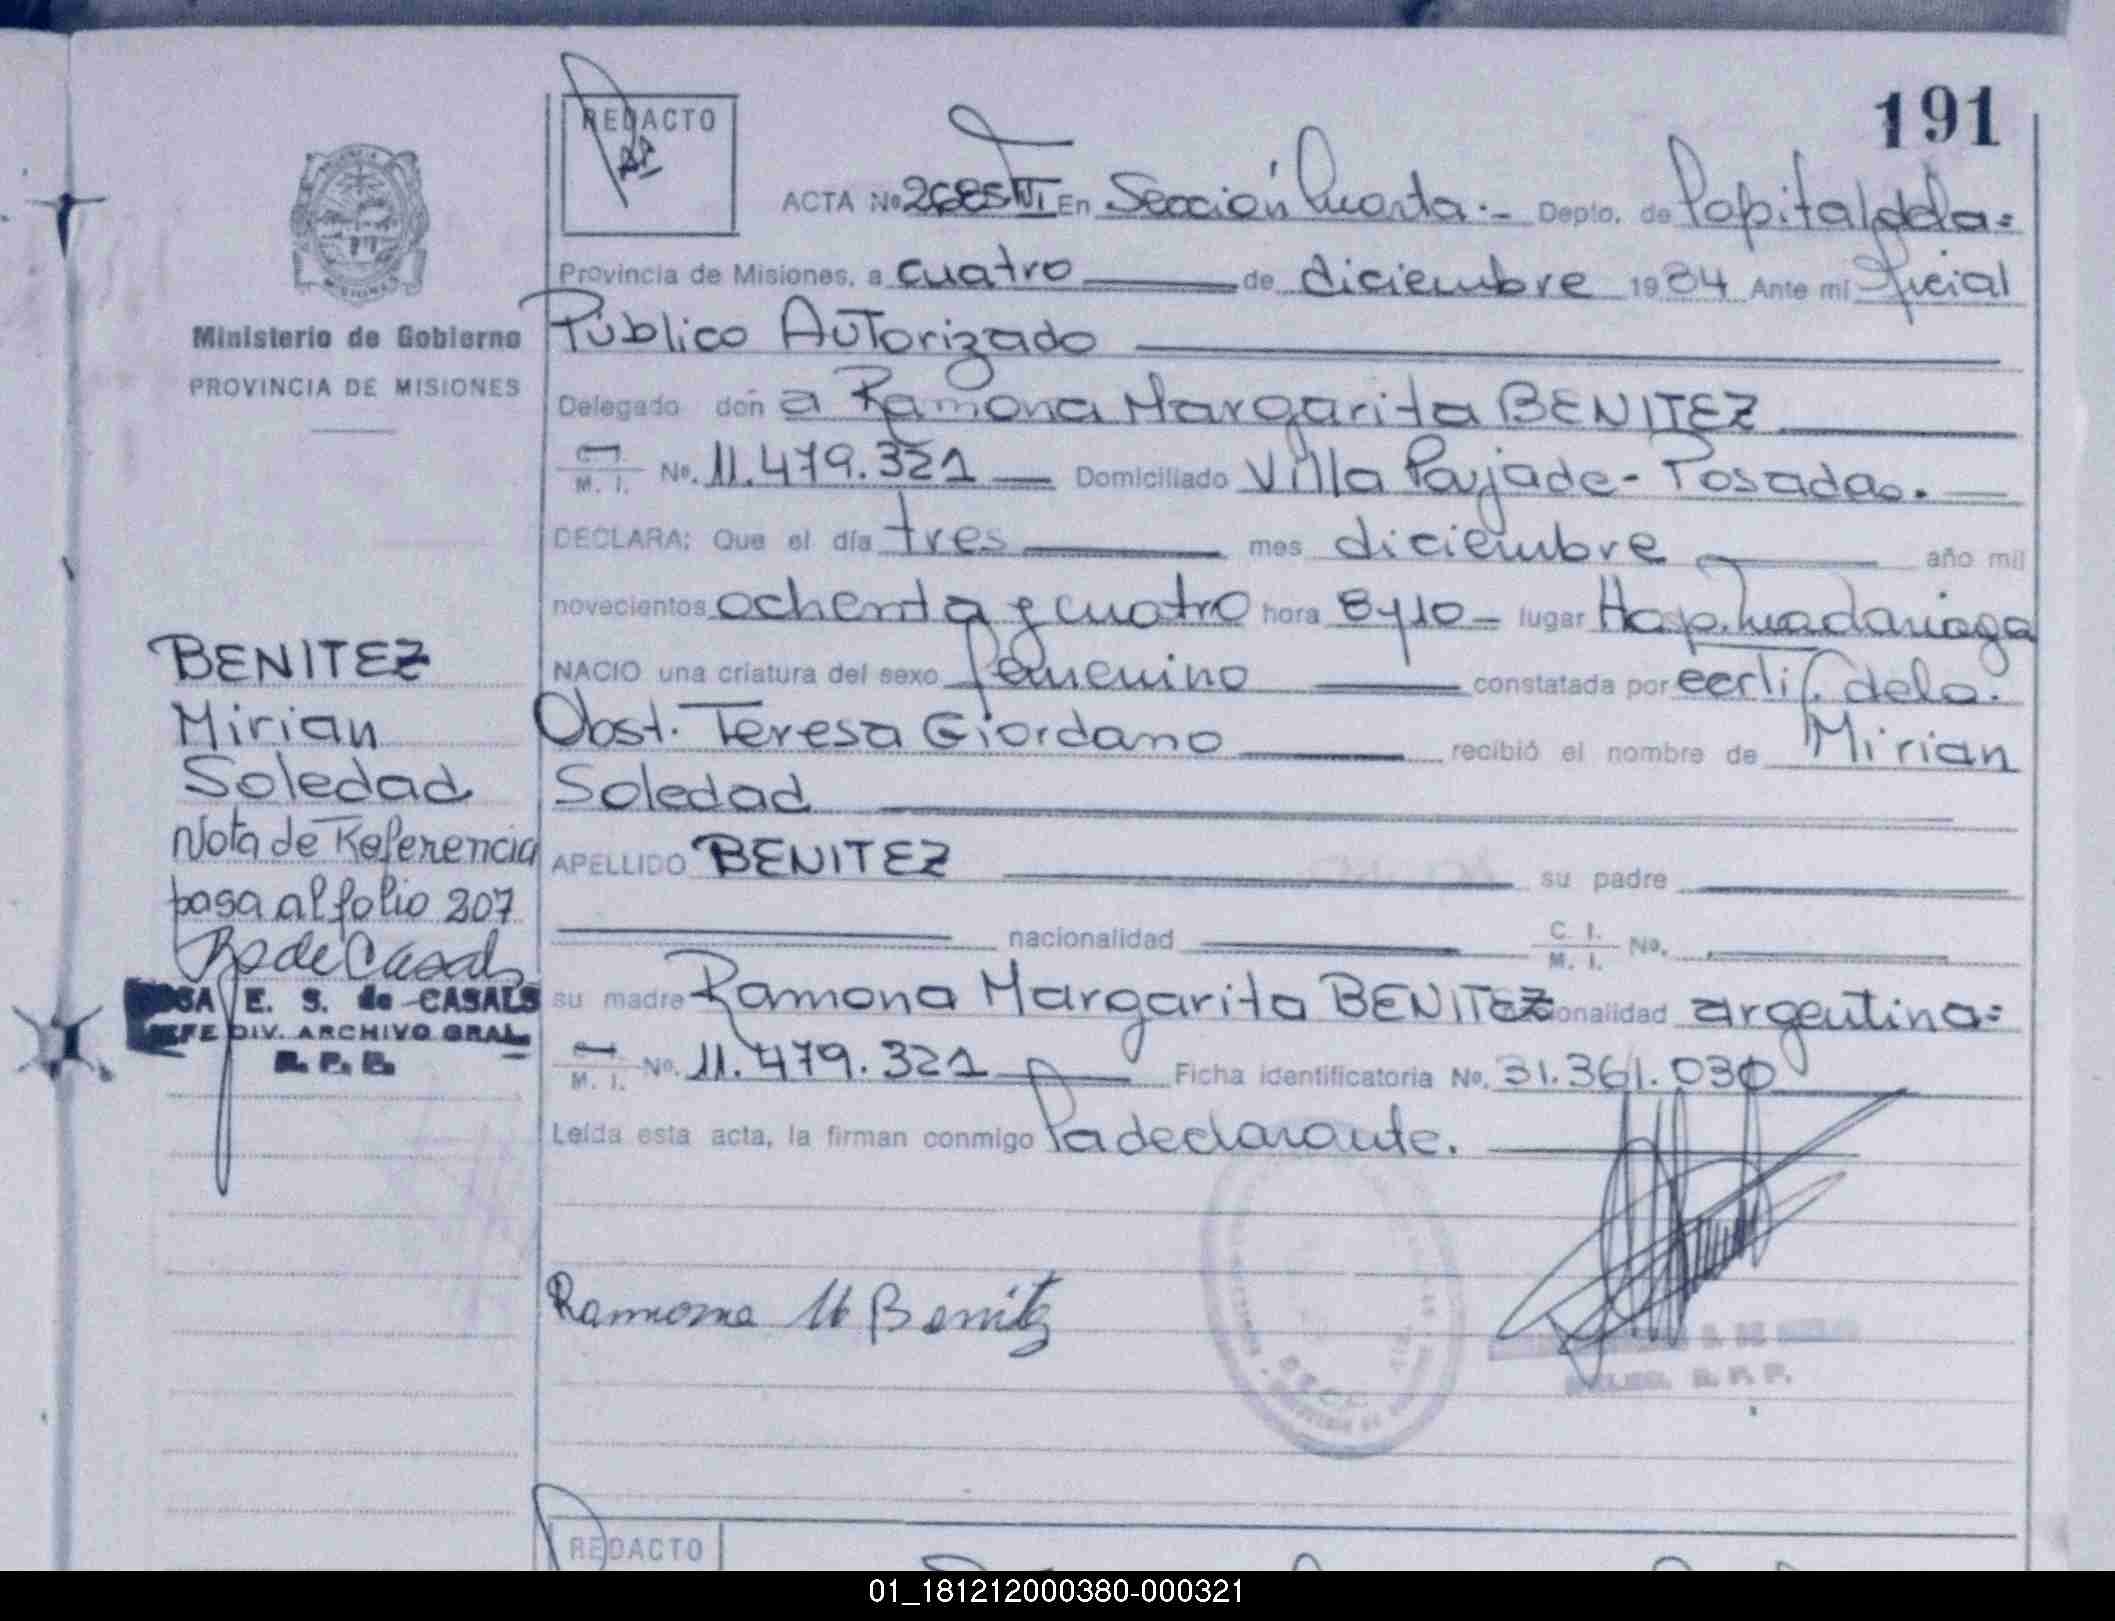 191
REDACTO
ACTA No 2685 VI En Sección Cuarta.- Depto. de Capital de la=
Provincia de Misiones, a cuatro de diciembre 1984 Ante mi Oficial
Ministerio de Gobierno
PROVINCIA DE MISIONES
Público Autorizado
Delegado don a Ramona Margarita BENITEZ
M. I. No. 11.479.321 Domiciliado Villa - Posadas.
DECLARA: Que el día tres mes diciembre año mil
novecientos ochenta y cuatro hora 8y10 lugar Hosp. Madariaga
NACIO una criatura del sexo femenino constatada por certif. de la.
Obst. Teresa Giordano recibió el nombre de Mirian
Soledad
APELLIDO BENITEZ su padre
nacionalidad C. I. M. I. No.
su madre Ramona Margarita BENITEZ nacionalidad argentina=
M. I. No. 11.479.321 Ficha identificatoria No. 31.361.030
Leída esta acta, la firman conmigo la declarante.
BENITEZ
Mirian
Soledad
Nota de Referencia
pasa al folio 207
R S de Casals
ROSA E. S. de CASALS
JEFE DIV. ARCHIVO GRAL.
R. P. P.
Ramona M Benitez
R. P. P.
REDACTO
01_181212000380-000321